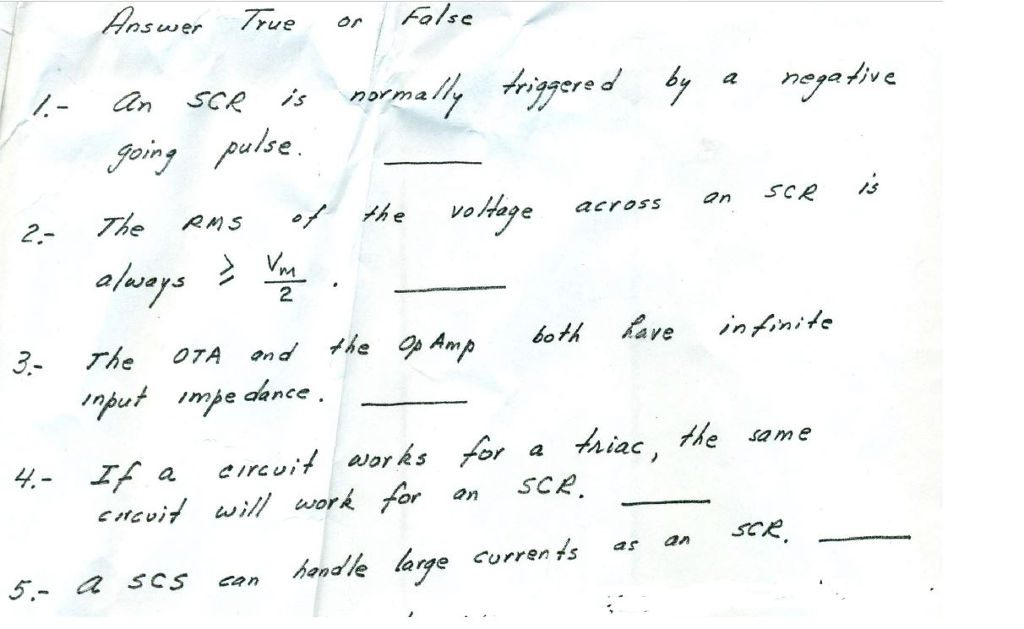 Answer True or False
1.- An SCR is normally triggered by a negative
going pulse.
2.- The RMS of the voltage across an SCR is
always ≥ VM/2 .
3.- The OTA and the Op Amp both have infinite
input impedance.
4.- If a circuit works for a triac, the same
circuit will work for an SCR.
5.- A SCS can handle large currents as an SCR.